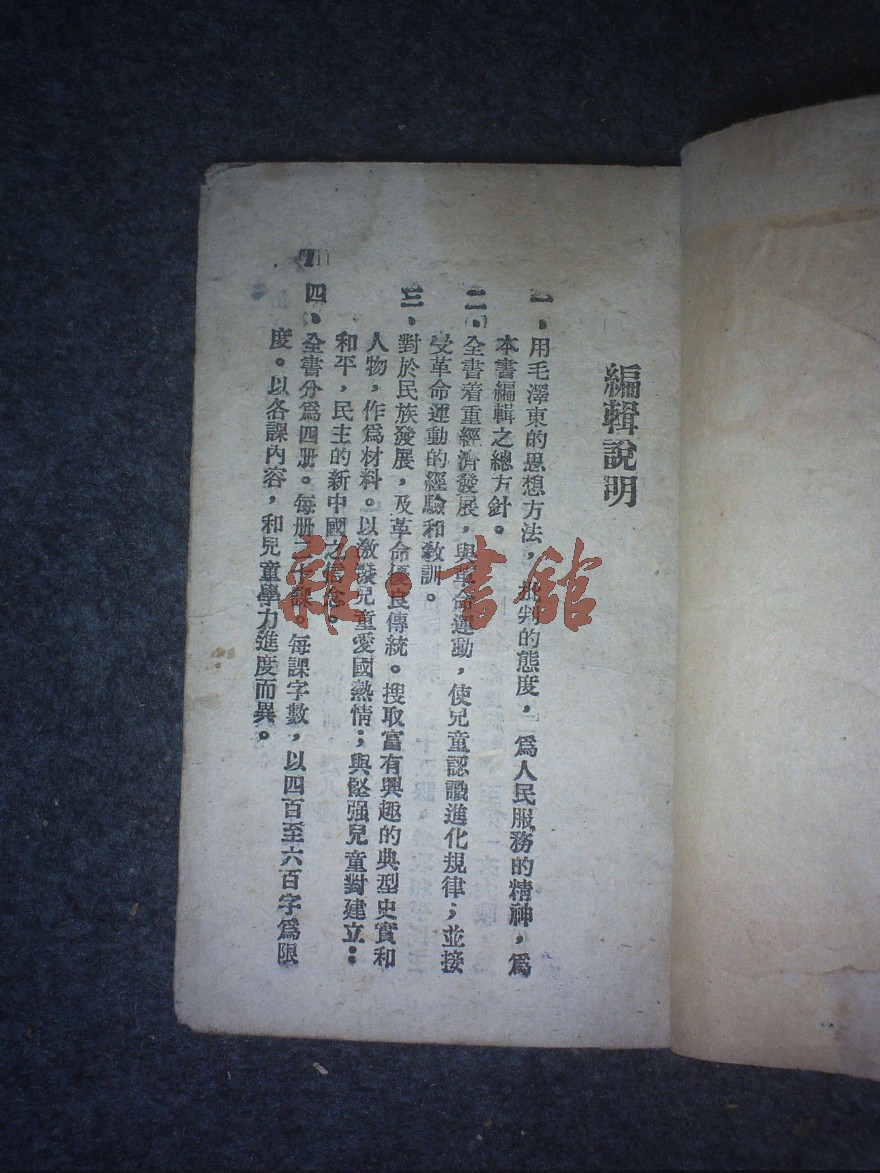 編輯說明
一．用毛澤東的思想方法，批判的態度，為人民服務的精神，為
本書編輯之總方針。
二．全書着重經濟發展，與革命運動，使兒童認識進化規律；並接
受革命運動的經驗和教訓。
三．對於民族發展，及革命優良傳統。搜取富有興趣的典型史實和
人物，作為材料。以激發兒童愛國熱情；與堅强兒童對建立：
和平，民主的新中國之信念。
四．全書分為四册。每册二十課。每課字數，以四百至六百字為限
度。以各課內容，和兒童學力進度而異。
雜·書館